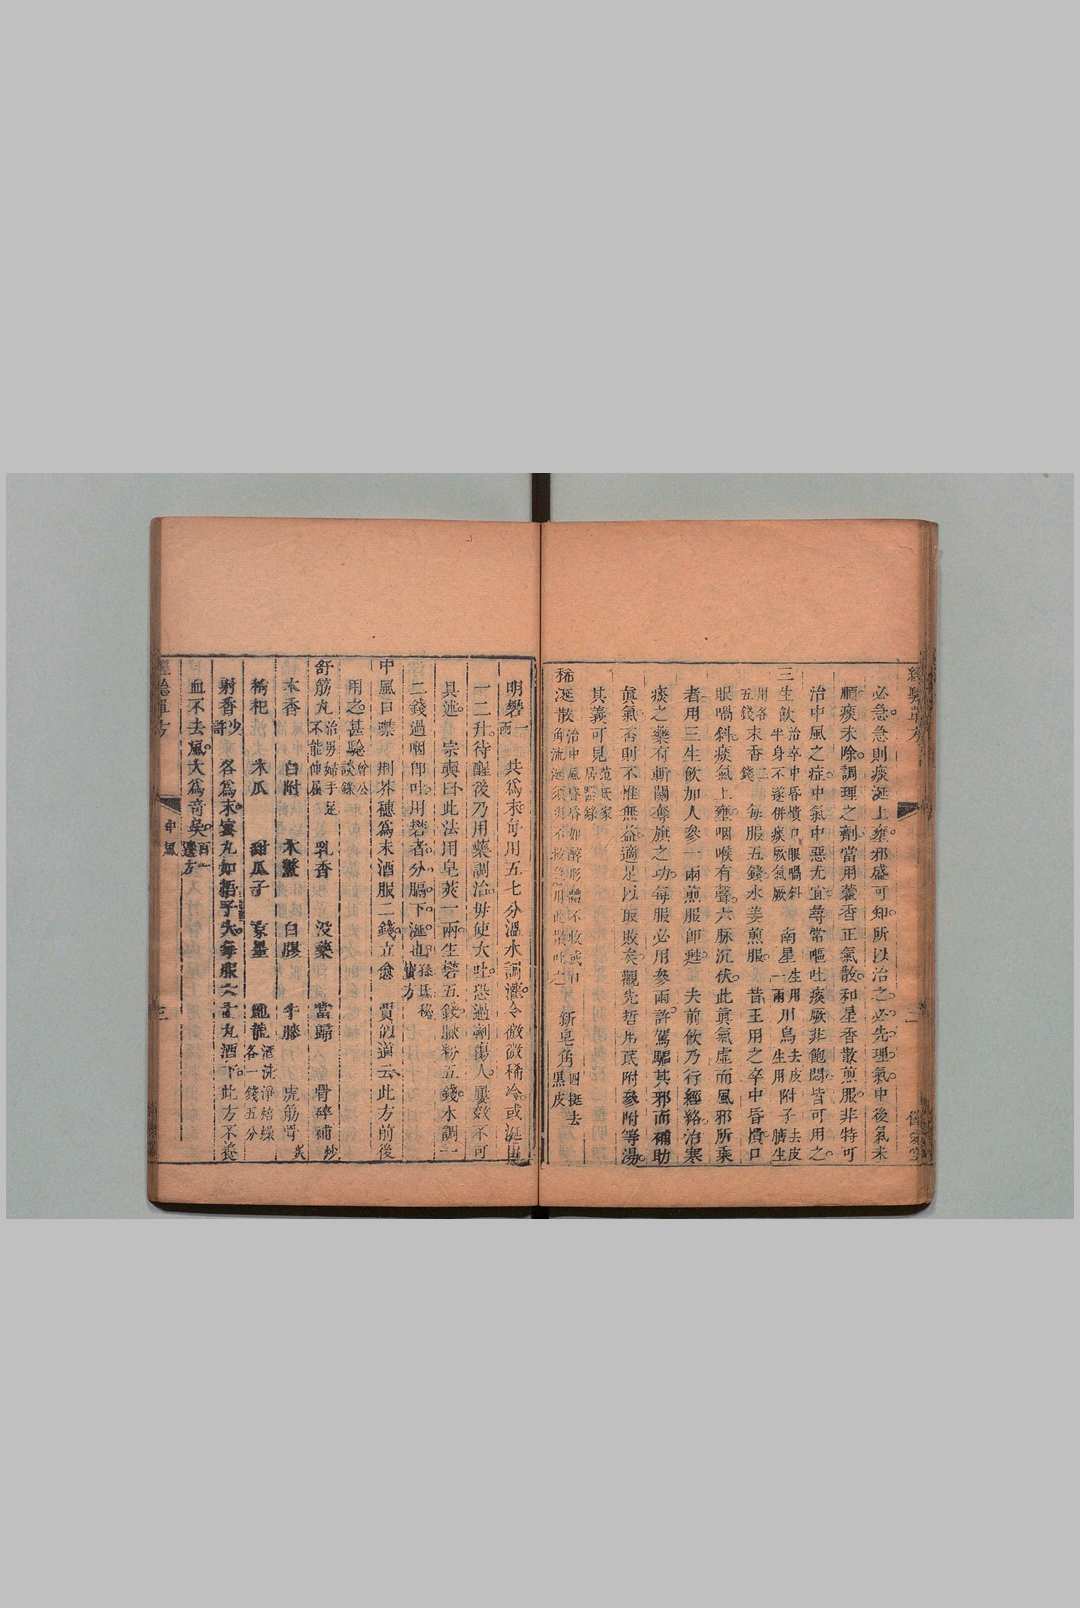 必急急急則痰涎上壅邪盛可知所以治之必先理氣中後氣未
順痰未除調理之劑當用藿香正氣散和星香散煎服非特可
治中風之症中氣中惡尤宜尋常嘔吐痰厥非飽悶皆可用之
三生飲治卒中昏憒口眼喎斜半身不遂併痰厥氣厥 南星生用一兩川烏去皮生用附子去皮臍生
用各五錢木香二錢 每服五錢水姜煎服昔王用之卒中昏憒口
眼喎斜痰氣上壅咽喉有聲六脉沉伏此眞氣虛而風邪所乘
者用三生飲加人參一兩煎服卽甦夫前飲乃行經絡治寒
痰之藥有斬關奪旗之功每服必用參兩許駕驅其邪而補助
眞氣否則不惟無益適足以取敗矣觀先哲用芪附參附等湯
其義可見范氏家居驗錄
稀涎散治中風昏昏如醉形體不收或口角流涎 新皂角四挺去黑皮
二
明礬一兩 共爲末每用五七分溫水調灌令微微稀冷或涎出
一二升待醒後乃用藥調治毋使大吐恐過劑傷人屢效不可
具述 宗奭曰此法用皂莢一兩生礬五錢膩粉五錢水調一
二錢過咽卽可用礬者分膈下涎也孫氏秘寶方
中風口噤 荆芥穗爲末酒服二錢立愈 賈似道云此方前後
用之甚驗曾公談錄
舒筋丸治男婦手足不能伸屈 乳香 沒藥 當歸 骨碎補炒
木香 白附 木鱉 白膠 牛膝 虎筋骨炙
枸杞 木瓜 甜瓜子 京墨 地龍酒洗淨焙燥各一錢五分
射香少許 各爲末蜜丸如梧子大每服六十丸酒下此方不養
血不去風大爲奇矣百一選方
經驗單方
中風
三